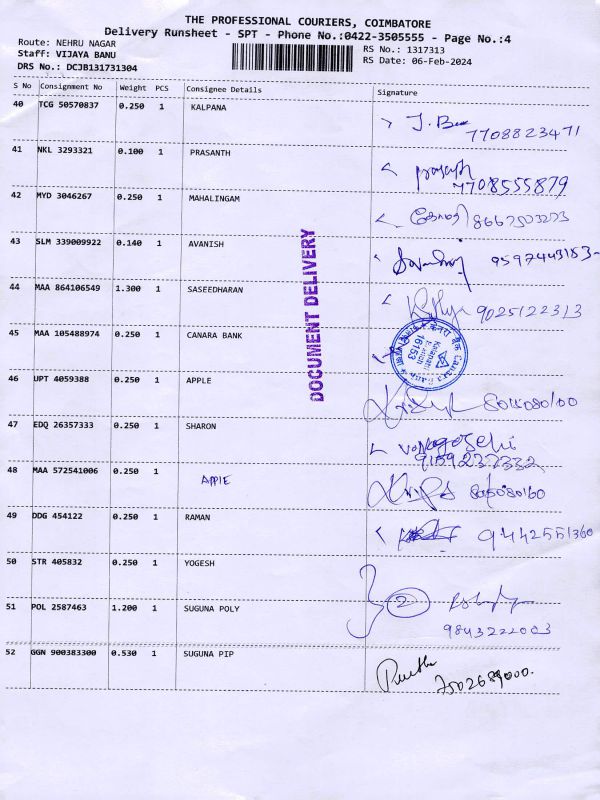 THE PROFESSIONAL COURIERS, COIMBATORE
Delivery Runsheet - SPT - Phone No.:0422-3505555 - Page No.:4
Route: NEHRU NAGAR RS No.: 1317313
Staff: VIJAYA BANU RS Date: 06-Feb-2024
DRS No.: DCJB131731304
S No Consignment No Weight PCS Consignee Details Signature
40 TCG 50570837 0.250 1 KALPANA
7708823471
41 NKL 3293321 0.100 1 PRASANTH
7708555879
42 MYD 3046267 0.250 1 MAHALINGAM
43 SLM 339009922 0.140 1 AVANISH
9597443183
44 MAA 864106549 1.300 1 SASEEDHARAN
9025122313
45 MAA 105488974 0.250 1 CANARA BANK
Canara Bank
16153
46 UPT 4059388 0.250 1 APPLE
47 EDQ 26357333 0.250 1 SHARON
48 MAA 572541006 0.250 1 APPlE
49 DDG 454122 0.250 1 RAMAN
9442551360
50 STR 405832 0.250 1 YOGESH
2
51 POL 2587463 1.200 1 SUGUNA POLY
9843222003
52 GGN 900383300 0.530 1 SUGUNA PIP
7502689000.
DOCUMENT DELIVERY